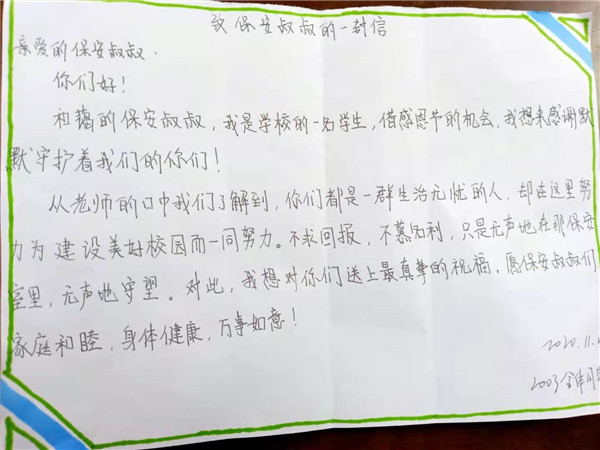 致保安叔叔的一封信
亲爱的保安叔叔：
你们好！
和蔼的保安叔叔，我是学校的一名学生，借感恩节的机会，我想来感谢默
默守护着我们的你们！
从老师的口中我们了解到，你们都是一群生活无忧的人，却在这里努
力为建设美好校园而一同努力。不求回报，不慕名利，只是无声地在那保安
室里，无声地守望。对此，我想对你们送上最真挚的祝福，愿保安叔叔们
家庭和睦，身体健康，万事如意！
2020.11.
2003全体同